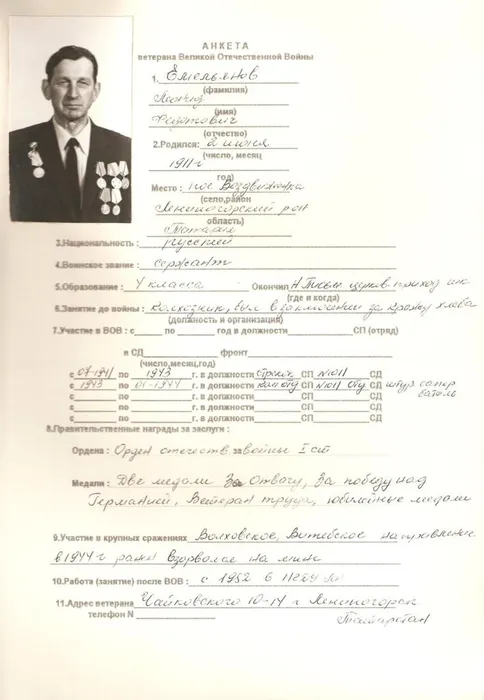 АНКЕТА
ветерана Великой Отечественной Войны
1. Емельянов
(фамилия)
Леонид
(имя)
Федотович
(отчество)
2.Родился: 2 июня
(число, месяц
1911 г
год)
Место : пос Воздвиженка
(село,район
Лениногорский рон
область)
Татария
3.Национальность : русский
4.Воинское звание : сержант
5.Образование : V класса Окончил церков. приход шк
(где и когда)
6.Занятие до войны : колхозник, был в заключении за кражу хлеба
(должность и организация)
7.Участие в ВОВ : с по год в должности СП (отряд)
в СД фронт
(число,месяц,год)
с 07-1941 по 1943 г. в должности СП N1011 СД
с 1943 по 01-1944 г. в должности ком отд СП N1011 СД штур сапер
с по г. в должности СП СД баталь
с по г. в должности СП СД
8.Правительственные награды за заслуги :
Ордена : Орден отечеств войны I ст
Медали : Две медали За Отвагу, За победу над
Германией, Ветеран труда, юбилейные медали
9.Участие в крупных сражениях Волховское, Витебское
в 1944 г ранен взорвался на мине
10.Работа (занятие) после ВОВ : с 1952 в
11.Адрес ветерана Чайковского 10-14 г Лениногорск
телефон N Татарстан